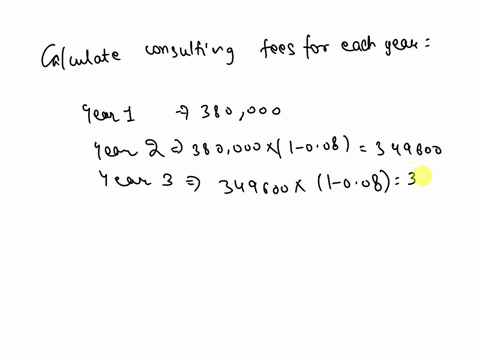 Calculate consulting fees for each year:
Year 1 => 380,000
Year 2 => 380,000 x (1-0.08) = 349800
Year 3 => 349600 x (1-0.08) = 3